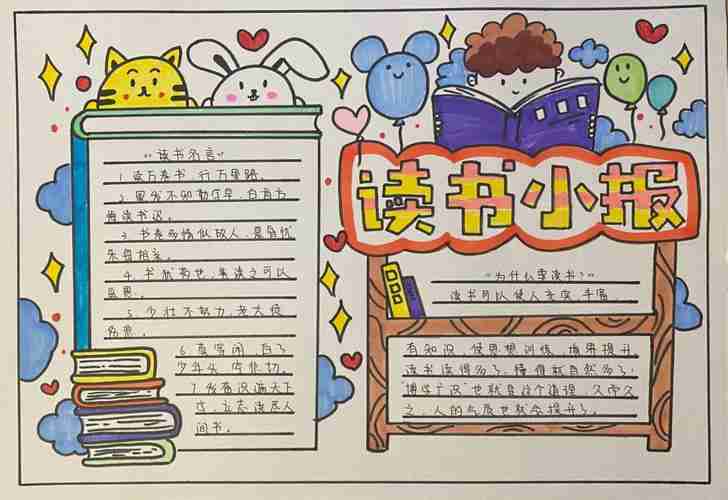 读书小报
"读书名言"
1. 读万卷书,行万里路。
2. 黑发不知勤学早,白首方
悔读书迟。
3. 书卷多情似故人,晨昏忧
乐每相亲。
4. 书犹药也,善读之可以
医愚。
5. 少壮不努力,老大徒
伤悲。
6. 莫等闲,白了
少年头,空悲切。
7. 发奋识遍天下
字,立志读尽人
间书。
"为什么要读书?"
读书可以使人充实,丰富,
有知识,使思想训练,境界提升
读书读得多了,懂得就自然多了,
"博学广识"也就是这个道理,久而久
之,人的气质也就会提升了。